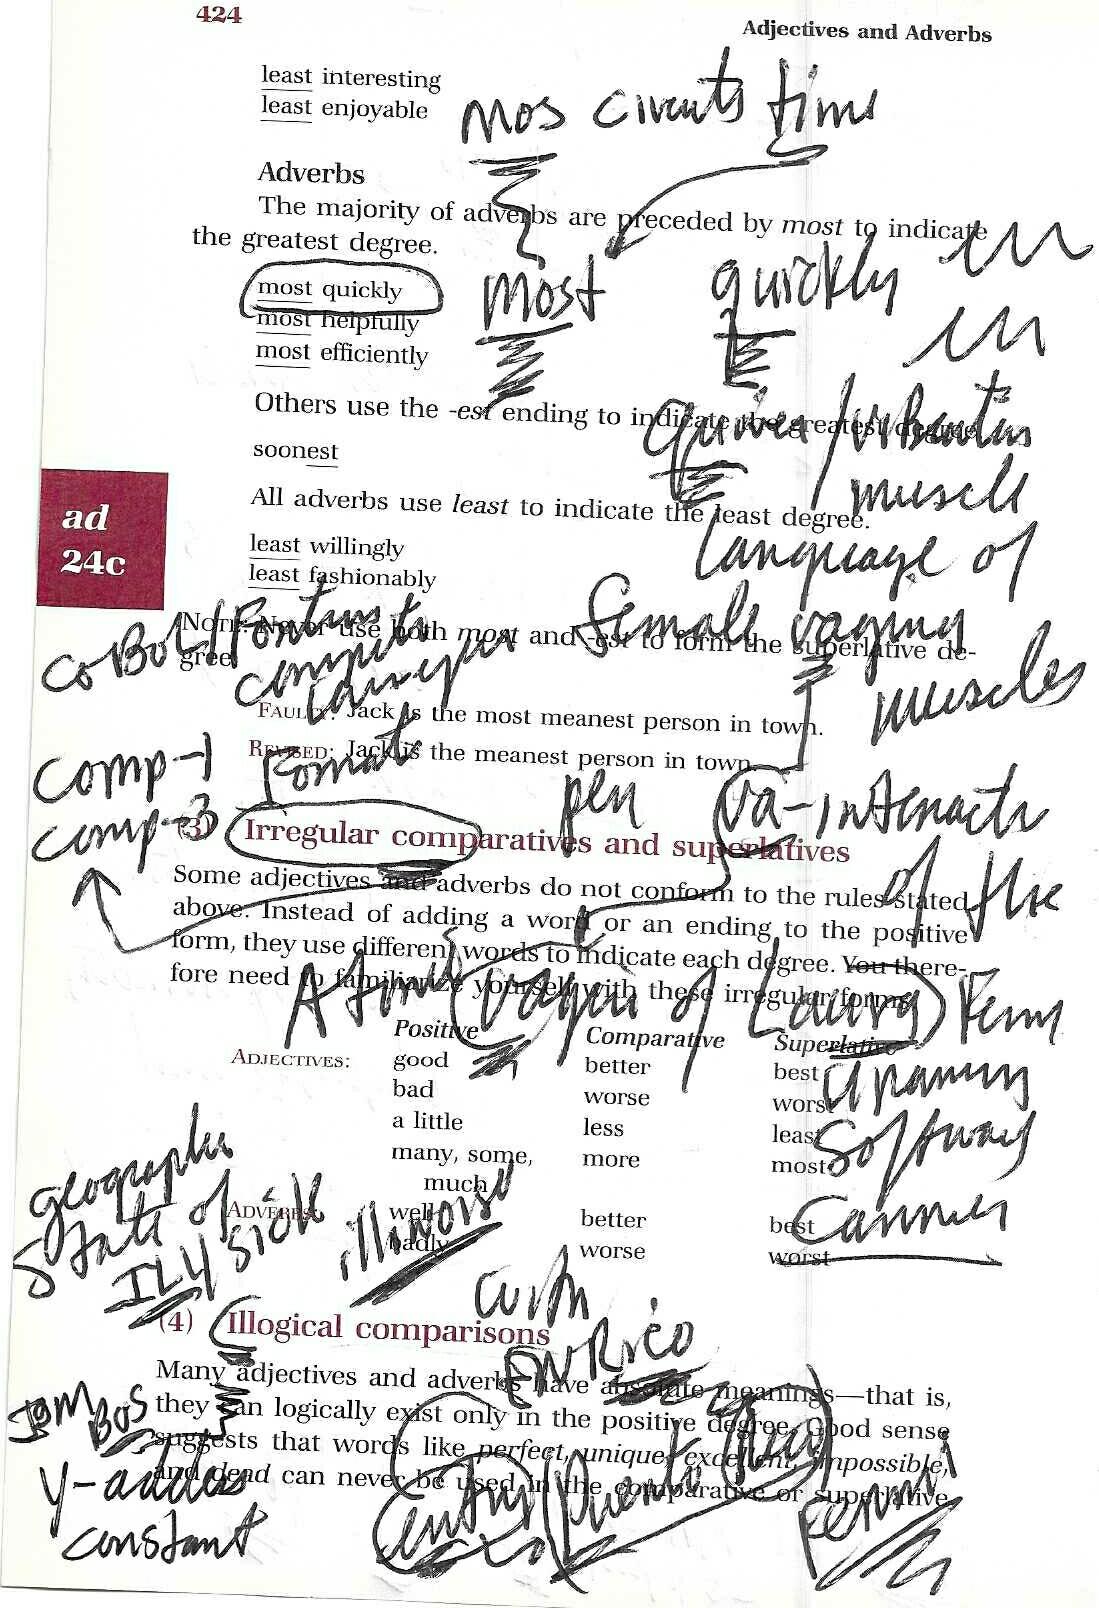 424
Adjectives and Adverbs
least interesting
least enjoyable
mos circuits time
Adverbs
The majority of adverbs are preceded by most to indicate
the greatest degree.
most quickly
most quickly
most helpfully
most efficiently
Others use the -est ending to indicate the greatest degree.
soonest
muscle
All adverbs use least to indicate the least degree.
language of
least willingly
least fashionably
ad
24c
female
NOTE: Never use both most and -est to form the superlative de-
gree.
muscles
FAULTY: Jack is the most meanest person in town.
REVISED: Jack is the meanest person in town.
comp-1
Format
pen
comp-3
(3) Irregular comparatives and superlatives
Some adjectives and adverbs do not conform to the rules stated
of the
above. Instead of adding a word or an ending to the positive
form, they use different words to indicate each degree. You there-
fore need to familiarize yourself with these irregular forms.
of Laura
Positive Comparative Superlative
ADJECTIVES: good better best
bad worse worst
a little less least
software
many, some, more most
much
geographic
state of
ADVERBS: well better best
badly worse worst
illinois
with
(4) Illogical comparisons
ENRICO
Many adjectives and adverbs have absolute meanings—that is,
they can logically exist only in the positive degree. Good sense
suggests that words like perfect, unique, excellent, impossible,
and dead can never be used in the comparative or superlative
IBM
BOS
Fermi
constant